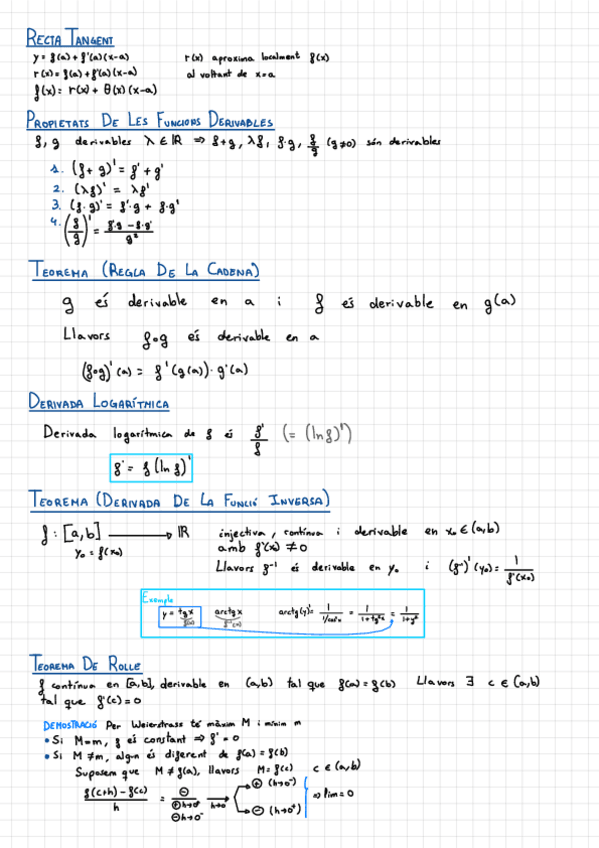 RECTA TANGENT
y = f(a) + f'(a)(x-a)    r(x) aproxima localment f(x)
r(x) = f(a) + f'(a)(x-a)    al voltant de x=a
f(x) = r(x) + θ(x)(x-a)
PROPIETATS DE LES FUNCIONS DERIVABLES
f, g derivables λ ∈ ℝ ⇒ f+g, λf, f·g, f/g (g≠0) són derivables
1. (f+g)' = f' + g'
2. (λf)' = λf'
3. (f·g)' = f'·g + f·g'
4. (f/g)' = (f'·g - f·g')/g²
TEOREMA (REGLA DE LA CADENA)
g és derivable en a i f és derivable en g(a)
Llavors f∘g és derivable en a
(f∘g)'(a) = f'(g(a))·g'(a)
DERIVADA LOGARÍTMICA
Derivada logarítmica de f és f'/f (= (ln f)')
f' = f (ln f)'
TEOREMA (DERIVADA DE LA FUNCIÓ INVERSA)
f : [a,b] → ℝ    injectiva, contínua i derivable en x₀ ∈ (a,b)
y₀ = f(x₀)    amb f'(x₀) ≠ 0
Llavors f⁻¹ és derivable en y₀ i (f⁻¹)'(y₀) = 1/f'(x₀)
Exemple
y = tg x    arctg x    arctg(y)' = 1/(1/cos²x) = 1/(1+tg²x) = 1/(1+y²)
f(x)    f⁻¹(x)
TEOREMA DE ROLLE
f contínua en [a,b], derivable en (a,b) tal que f(a) = f(b) Llavors ∃ c ∈ (a,b)
tal que f'(c) = 0
DEMOSTRACIÓ Per Weierstrass té màxim M i mínim m
• Si M=m, f és constant ⇒ f' = 0
• Si M≠m, algun és diferent de f(a) = f(b)
Suposem que M ≠ f(a), llavors M = f(c) c ∈ (a,b)
(f(c+h) - f(c))/h = ⊖/(⊕ h→0⁺ ⊖ h→0⁻) → h→0 ⊕ (h→0⁻) ⊖ (h→0⁺) ⇒ lim = 0